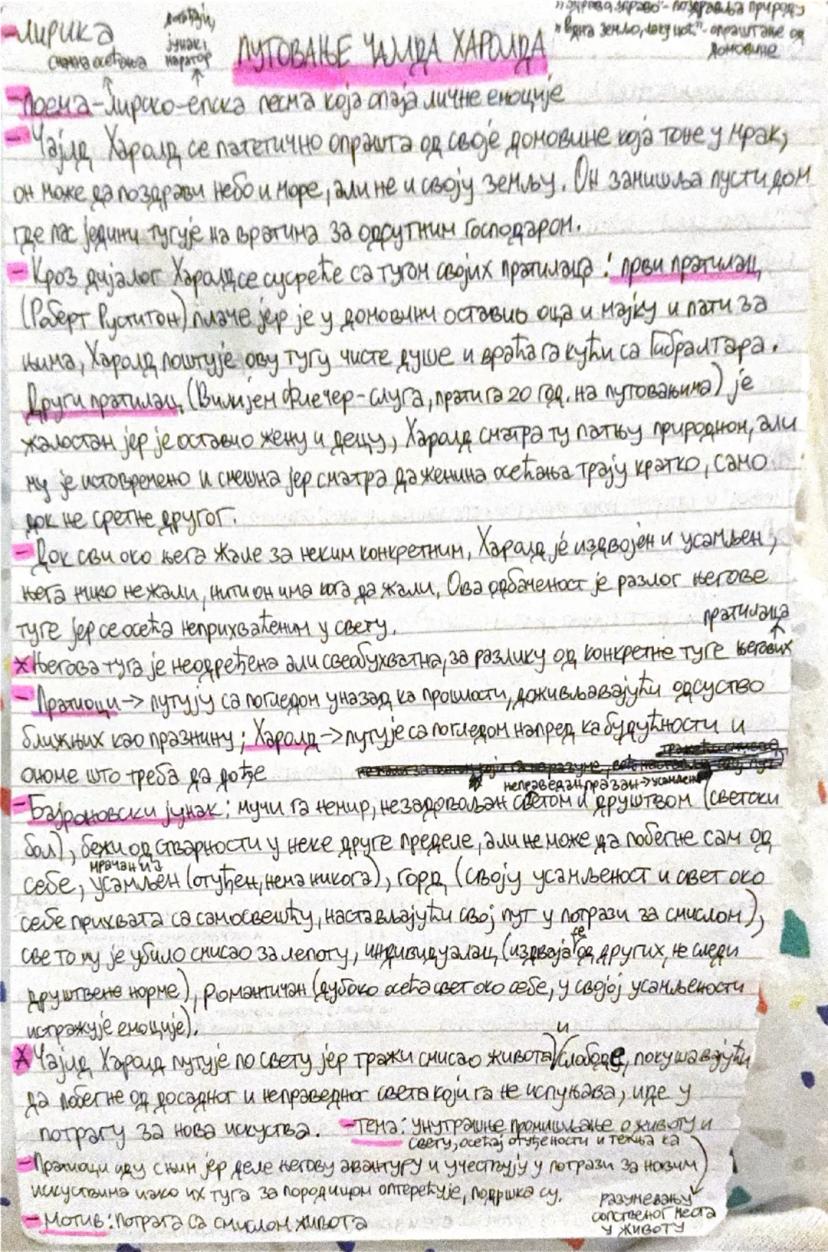 -ЛИРИКА
снажна осећања
догађаји,
јунак,
наратор
ПУТОВАЊЕ ЧАЈЛДА ХАРОЛДА
"здраво, здраво"- поздравља природу
"једна земљо, лаку ноћ"- опраштање од
домовине
-Поема-лирско-епска песма која спаја личне емоције
-Чајлд Харолд се патетично опрашта од своје домовине која тоне у мрак,
он може да поздрави небо и море, али не и своју земљу. Он замишља пусти дом
где пас једини тугује на вратима за одсутним господаром.
-Кроз дијалог Харолд се сусреће са тугом својих пратилаца: први пратилац
(Роберт Руштитон) плаче јер је у домовини оставио оца и мајку и пати за
њима, Харолд поштује ову тугу чисте душе и враћа га кући са Гибралтара.
Други пратилац (Вилијем Флечер-слуга, прати га 20 год. на путовањима) је
жалостан јер је оставио жену и децу, Харолд сматра ту патњу природном, али
му је истовремено и смешна јер сматра да женина осећања трају кратко, само
док не сретне другог.
-Док сви око њега жале за неким конкретним, Харолд је издвојен и усамљен,
њега нико не жали, нити он има кога да жали. Ова одбаченост је разлог његове
туге јер се осећа неприхваћеним у свету.
пратилаца
*Његова туга је неодређена али свеобухватна, за разлику од конкретне туге његових
-Пратиоци→путују са погледом уназад ка прошлости, доживљавајући одсуство
ближњих као празнину; Харолд→путује са погледом напред ка будућности и
ономе што треба да дође
неправедан празан→усамљен
-Бајроновски јунак: мучи га немир, незадовољан светом и друштвом (светски
бол), бежи од стварности у неке друге пределе, али не може да побегне сам од
мрачан и
себе, усамљен (отуђен, нема никога), горд (своју усамљеност и свет око
себе прихвата са самосвешћу, настављајући свој пут у потрази за смислом),
све то му је убило смисао за лепоту, индивидуалац (издваја се од других, не следи
друштвене норме), романтичан (дубоко осећа свет око себе, у својој усамљености
истражује емоције).
*Чајлд Харолд путује по свету јер тражи смисао живота и слободе, покушавајући
да побегне од досадног и неправедног света који га не испуњава, иде у
потрагу за нова искуства. -тема: унутрашње промишљање о животу и
свету, осећај отуђености и тежња ка
-Пратиоци иду с њим јер деле његову авантуру и учествују у потрази за новим
искуствима иако их туга за породицом оптерећује, подршка су.
разумевању
сопственог места
у животу
-мотив: потрага са смислом живота